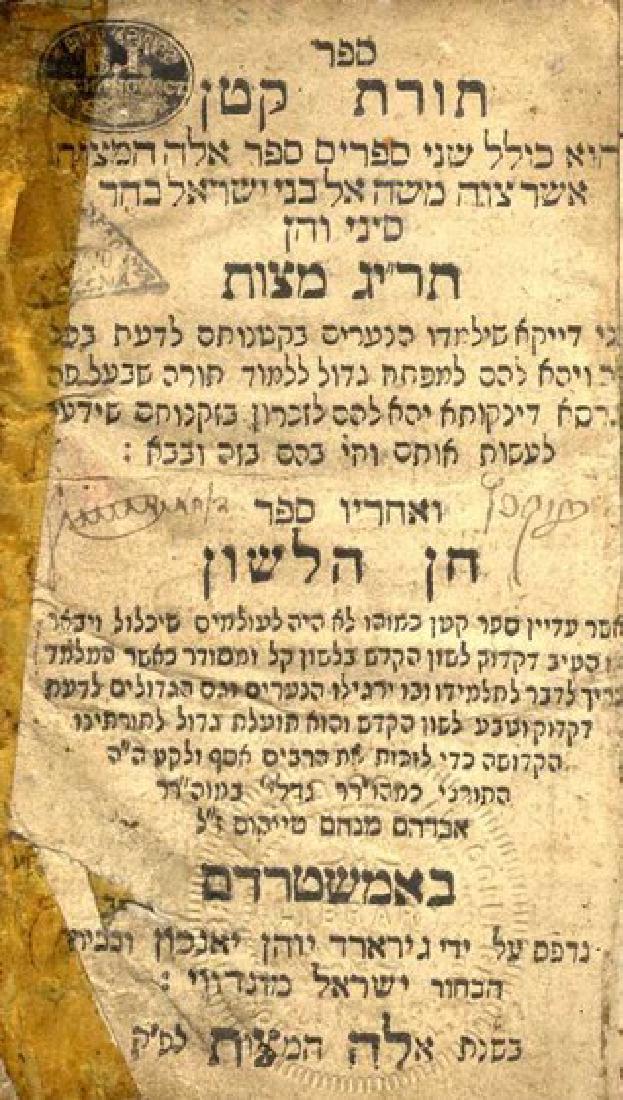 ספר
תורת קטן
הוא כולל שני ספרים ספר אלה המצות
אשר צוה משה אל בני ישראל בהר
סיני והן
תרי"ג מצות
דייקא שילמדו הנערים בקטנותם לדעת
ויהא להם למפתח גדול ללמוד תורה שבעל פה
דינקותא יהא להם לזכרון בזקנותם שידעו
לעשות אותם וחי בהם בזה ובבא :
ואחריו ספר
חן הלשון
אשר עדיין ספר קטן כמוהו לא היה לעולמים שיכלול ויבאר
היטיב דקדוק לשון הקדש בלשון קל ומסודר כאשר המלמד
צריך לדבר לתלמידו ובו ירגילו הנערים וגם הגדולים לדעת
דקדוק וטבע לשון הקדש והוא תועלת גדול לתורתינו
הקדושה כדי לזכות את הרבים אסף ולקט ה"ה
התורני כמהור"ר גדלי' במוה"רר
אברהם מנחם טייקוס ז"ל
באמשטרדם
נדפס על ידי גירארד יוהן יאנכון ובבית
הבחור ישראל מונדווי :
בשנת אלה המצות לפ"ק